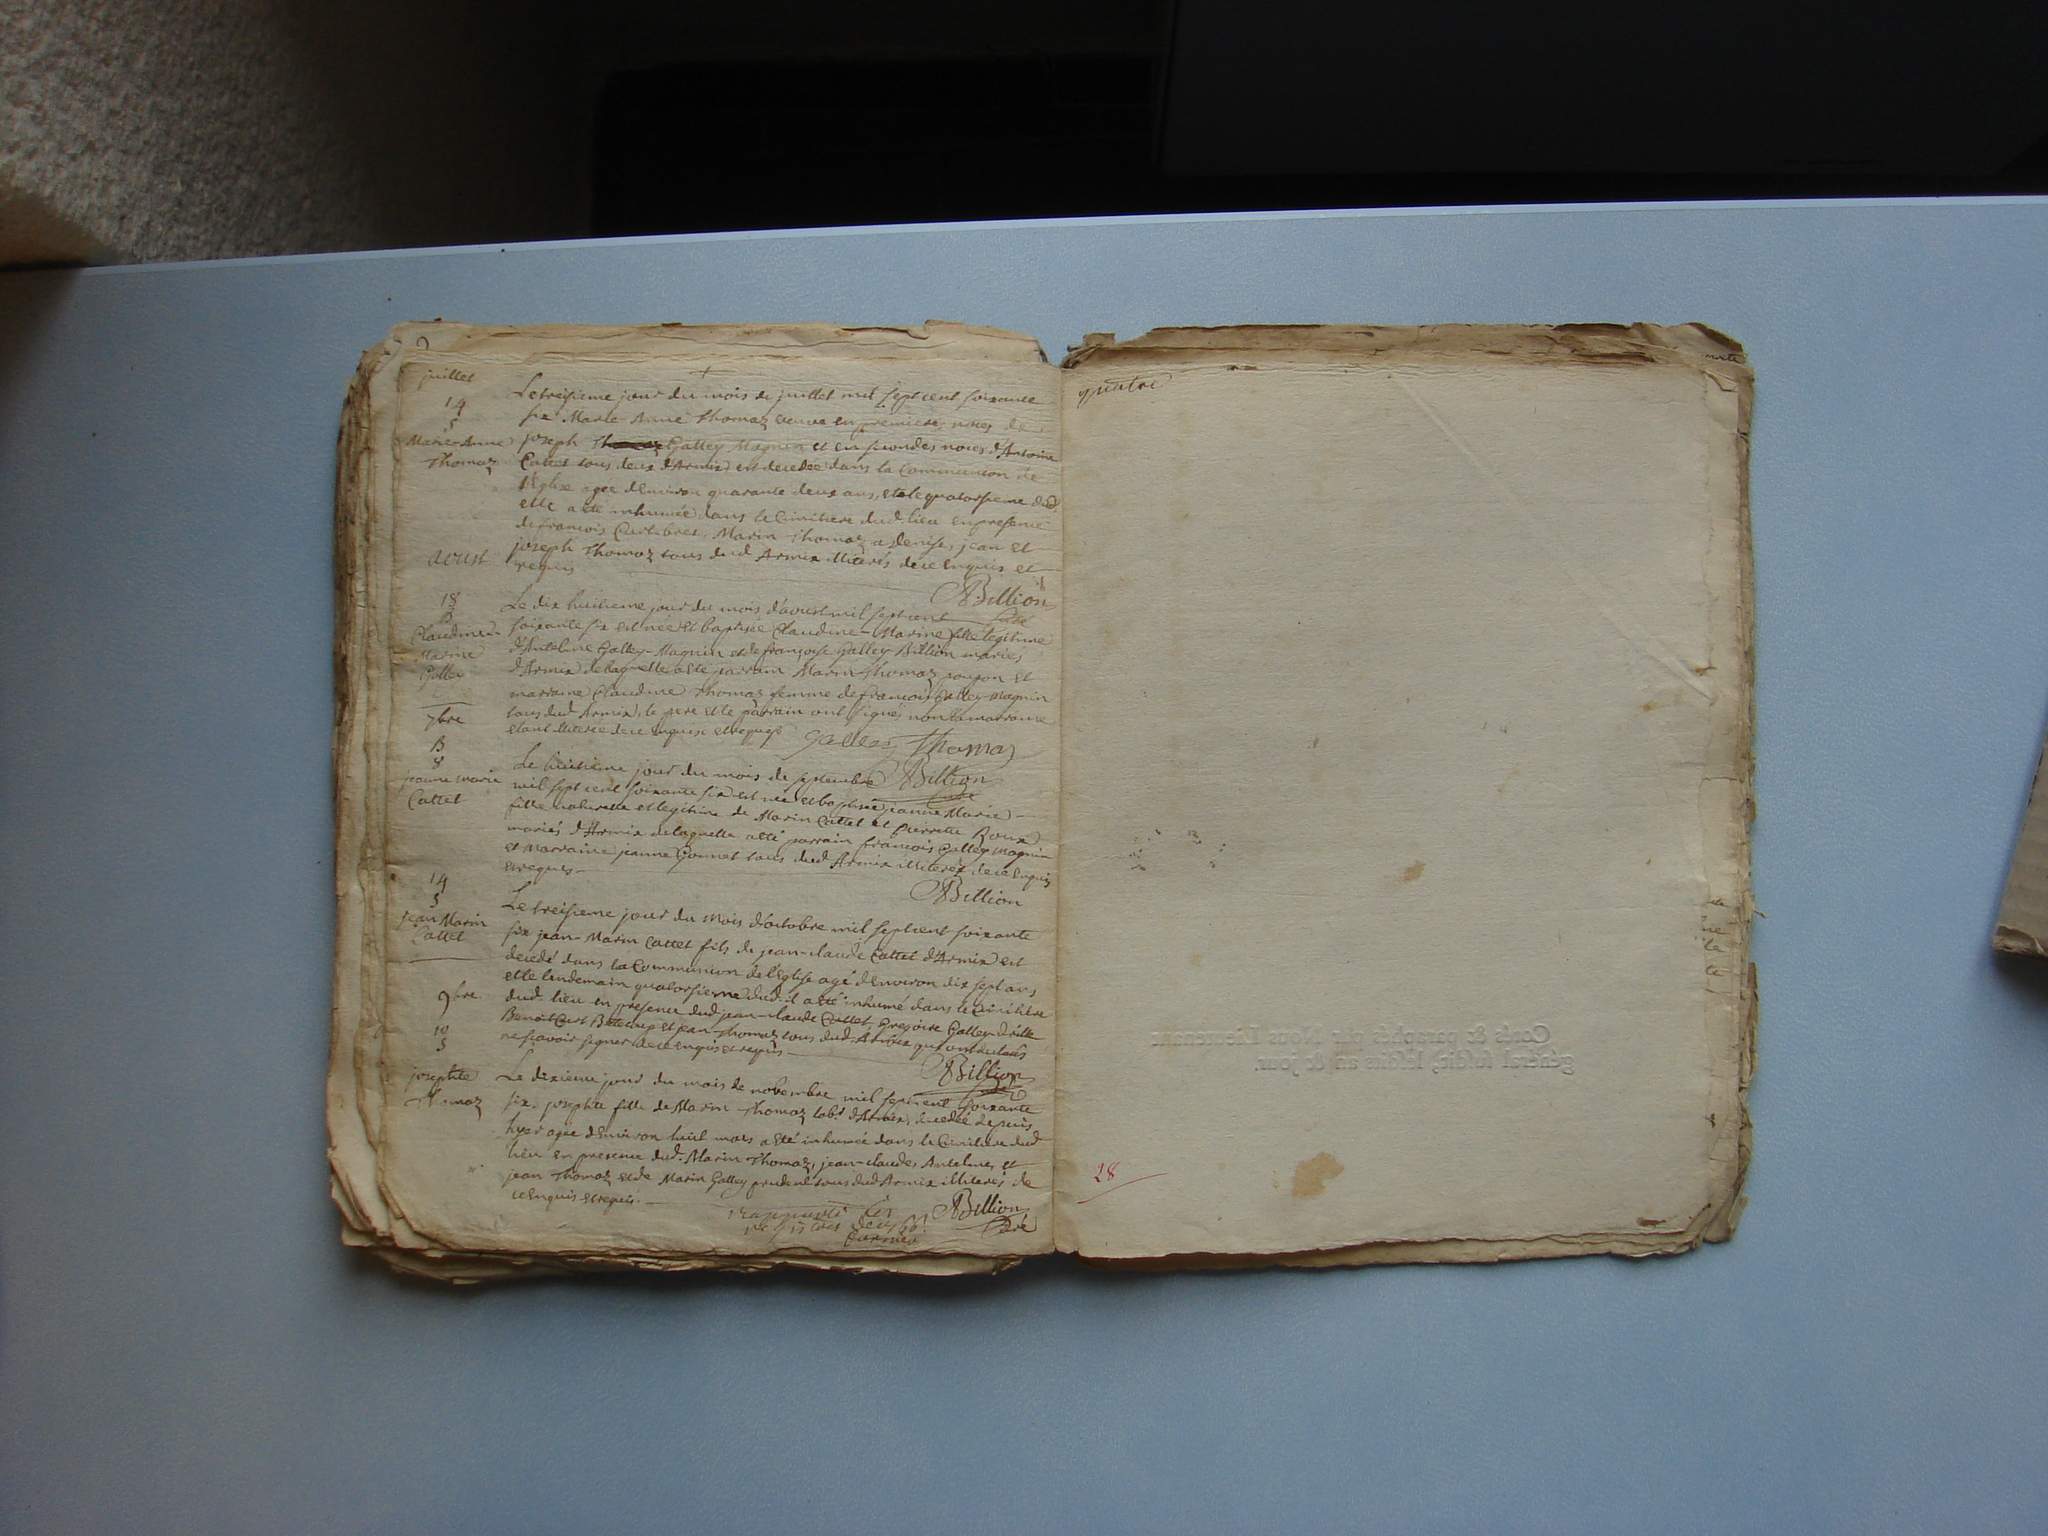 juillet
14
S
Marie-Anne
Thomaz
Le treisieme jour du mois de juillet mil sept cent soixante
six Marie Anne Thomaz veuve en premieres noces de
joseph Galley Magnin et en secondes noces d'Antoine
Cattet tous deux d'Armix est decedée dans la Communion de
l'Eglise agée d'environ quarante deux ans, et le quatorsieme dud.
elle a eté inhumée dans le Cimitiere dud. lieu en presence
de francois Curtebres, Marin Thomaz a denise, jean et
joseph Thomaz tous dud Armix illiterés de ce enquis et
requis
Billion
aoust
18
B
Claudine
Marine
Galley
Le dix huitieme jour du mois d'aoust mil sept cent
soixante six est née et baptisée Claudine-Marine fille legitime
d'Antelme Galley-Magnin et de françoise Galley-Billion mariés
d'Armix de laquelle a eté parrain Marin Thomaz poupon et
marraine Claudine Thomaz femme de francois Galley-Magnin
tous dud Armix, le pere et le parrain ont signés non la marraine
etant illiterée de ce enquise et requise
Galley Thomaz
Billion
7bre
B
8
jeanne marie
Cattet
Le huitieme jour du mois de septembre
mil sept cent soixante six est née et baptisée jeanne Marie
fille naturelle et legitime de Marin Cattet et Pierrette Roux
mariés d'Armix de laquelle a eté parrain francois Galley magnin
et Marraine jeanne Gonnet tous dud Armix illiterez de ce enquis
et requis
Billion
14
S
jean Marin
Cattet
Le treisieme jour du mois d'octobre mil sept cent soixante
six jean-Marin Cattet fils de jean-claude Cattet d'Armix est
decedé dans la Communion de l'Eglise agé d'environ dix sept ans
et le lendemain quatorsieme dud. il a eté inhumé dans le Cimitiere
dud. lieu en presence dud jean-claude Cattet, Gregoire Galley
Benoit Curt et jean Thomaz tous dud. Armix qui ont declarés
ne sçavoir signer de ce enquis et requis
Billion
9bre
10
S
josephte
Thomaz
Le dixieme jour du mois de novembre mil sept cent soixante
six. josephte fille de Marin Thomaz labr. d'Armix, decedée depuis
hyer agée d'environ huit mois a eté inhumée dans le Cimitiere dud
lieu en presence dud. Marin Thomaz, jean-claude, Antelme, et
jean Thomaz et de Marin Galley prudent tous dud Armix illiterés de
ce enquis et requis.
Billion
Curé
quatre
Cotés & paraphés par Nous Lieutenant
général susdit, lesdits an & jour.
28